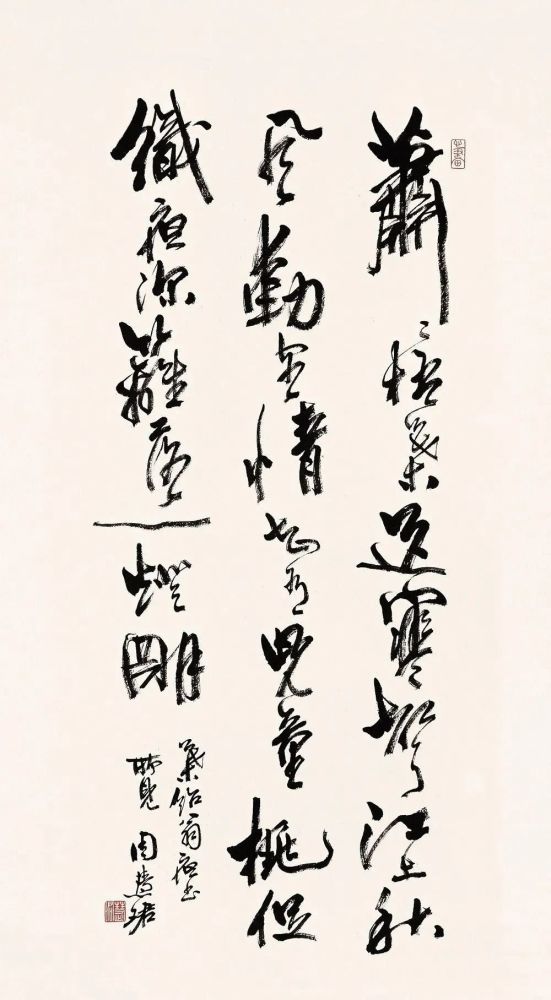 蕭〻梧葉送寒聲江上秋
風動客情知有兒童挑促
織夜深籬落一燈明
葉紹翁夜書
所見 周慧珺